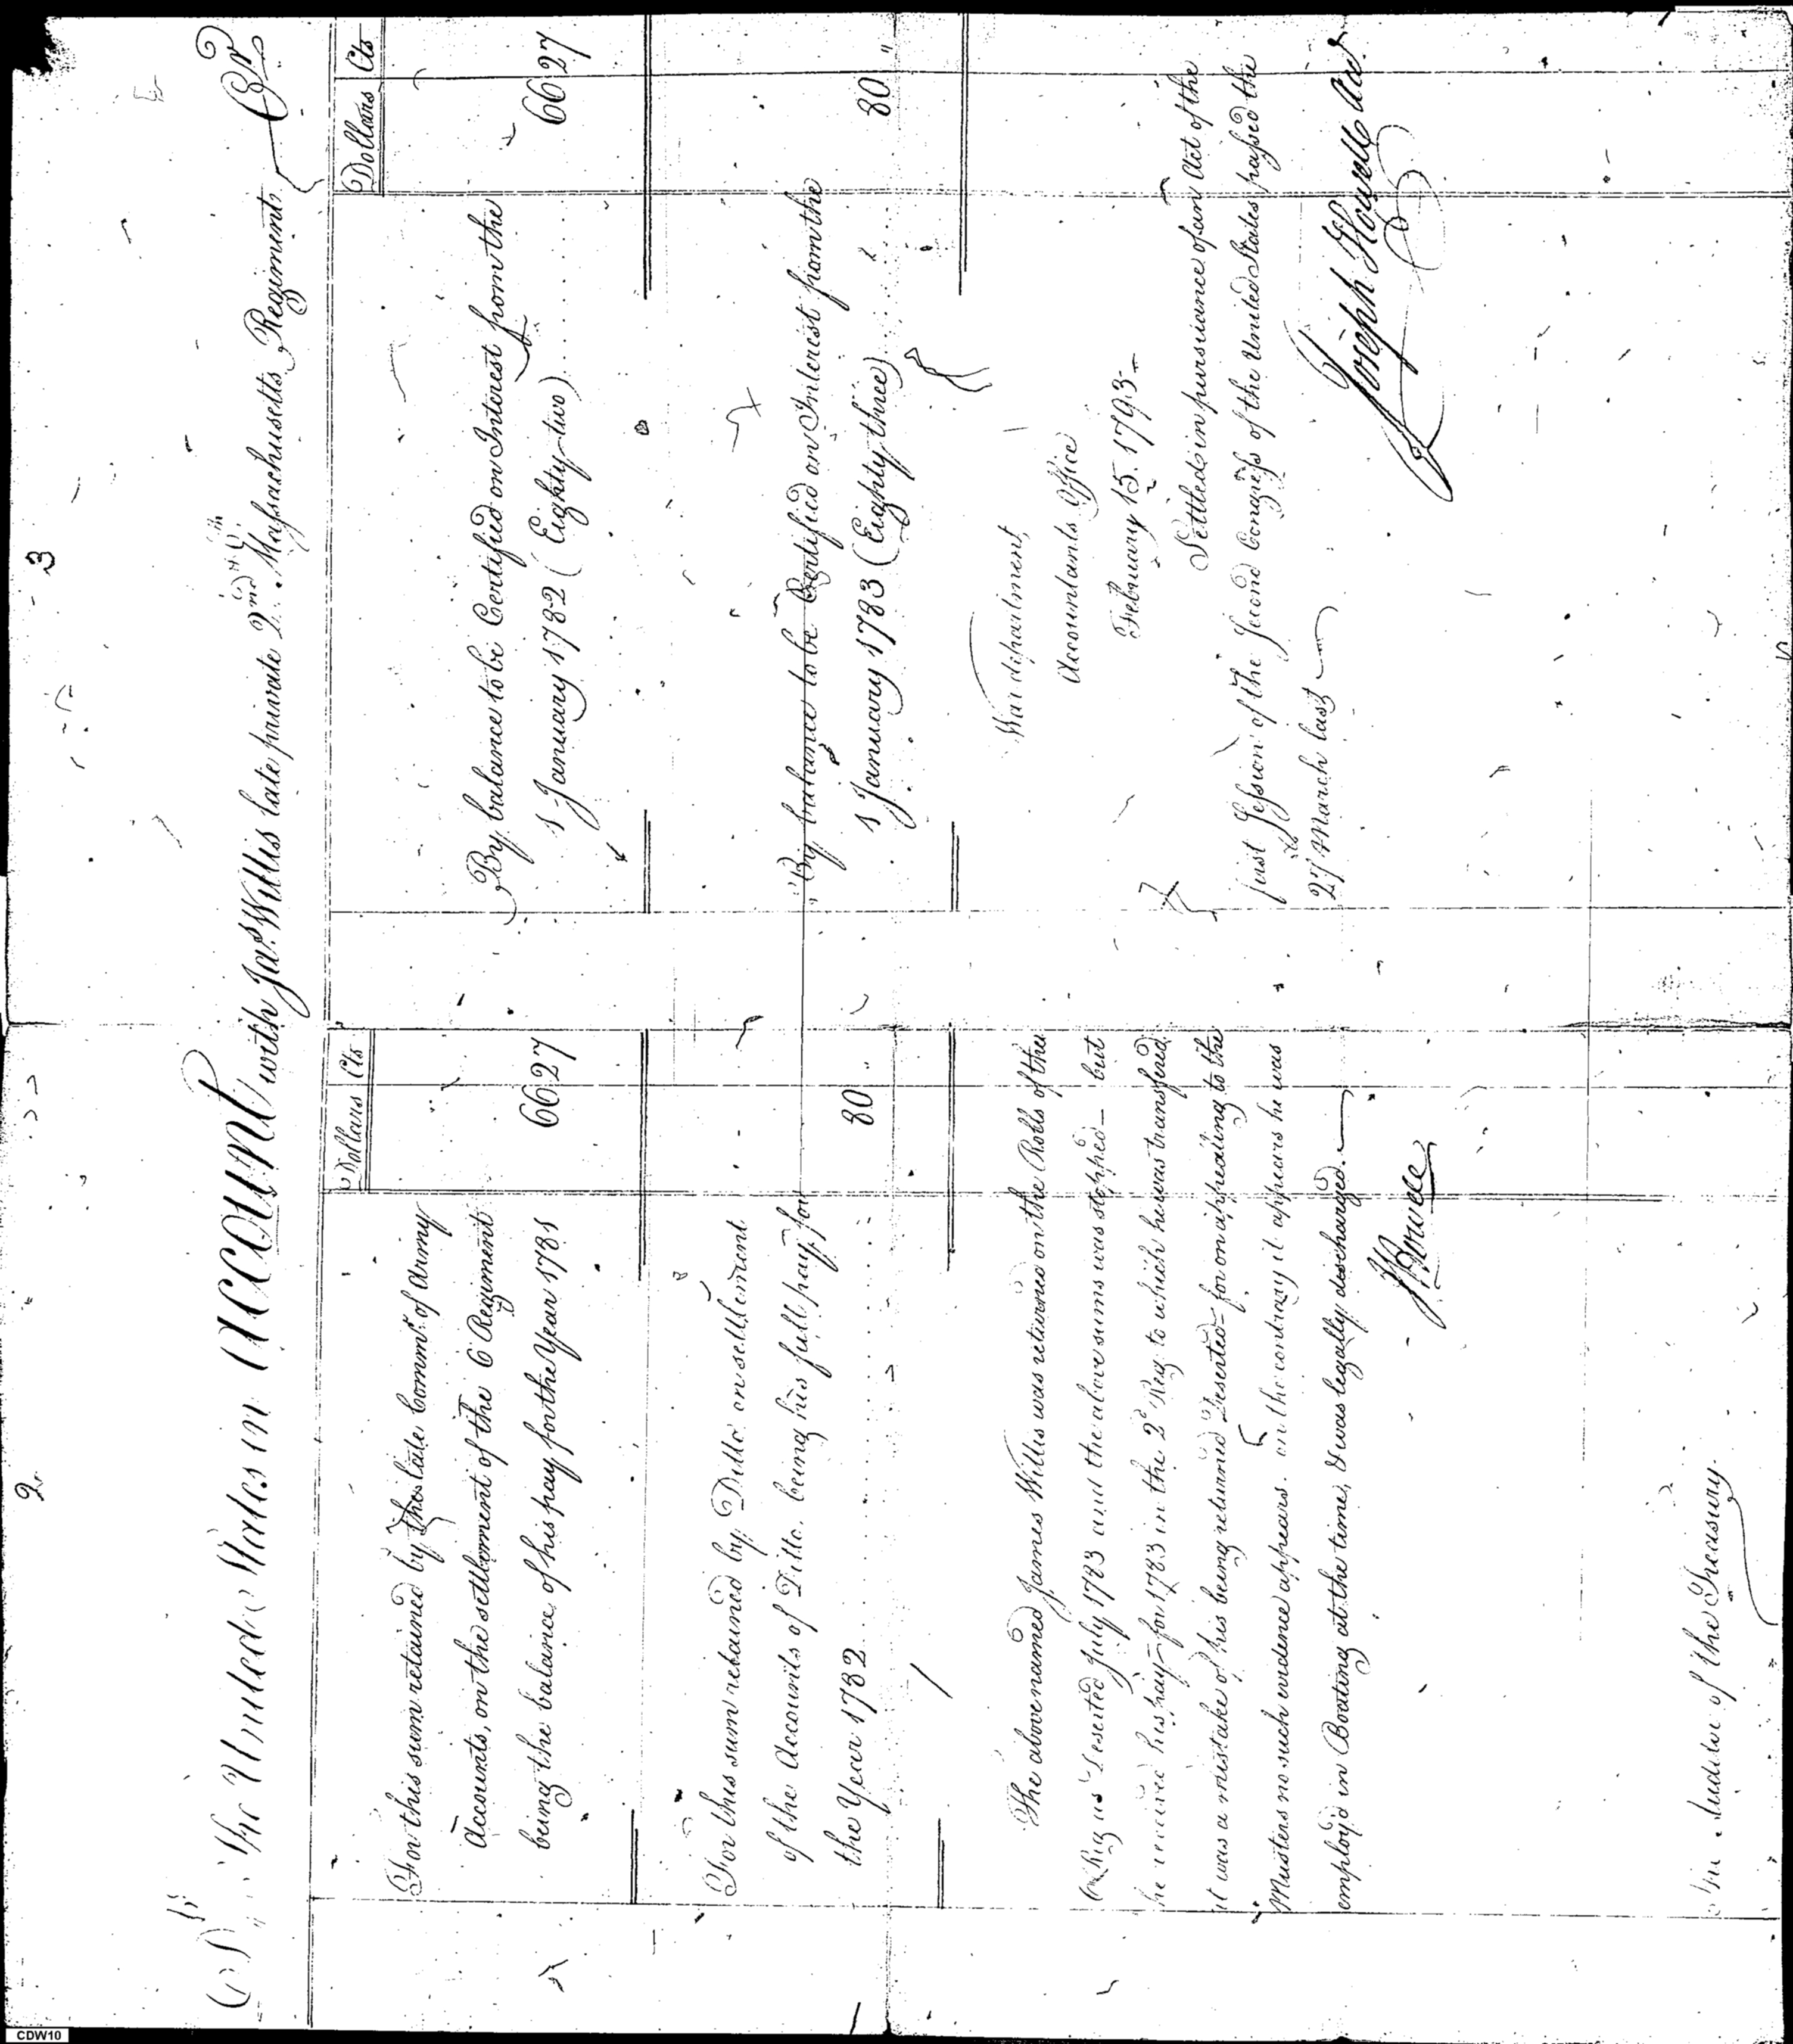 2
3
Dr The United States in Account with Jas Willis late private 2nd Massachusetts Regiment Cr
Dollars Cts
For this sum retained by the late Commr of Army
Accounts, on the settlement of the 6 Regiment
being the balance of his pay for the Year 1781 66 27
For this sum retained by Ditto on settlement
of the Accounts of Ditto. being his full pay for
the Year 1782 80 "
The above named James Willis was returned on the Rolls of the
6 Reg as Deserted July 1783 and the above sums was stopped – but
he received his pay – for 1783 in the 2d Reg to which he was transfered
it was a mistake of his being returned Deserted – for on appealing to the
Musters no such evidence appears. on the contrary it appears he was
employd in Boating at the time, & was legally discharged.
J Howell
The Auditor of the Treasury.
Dollars Cts
By balance to be Certified on Interest from the
1 January 1782 (Eighty two) 66 27
By balance to be Certified on Interest from the
1 January 1783 (Eighty three) 80 "
War department,
Accountants Office
February 15. 1793 –
Settled in pursuance of an Act of the
first Session of the Second Congress of the United States passed the
27 March last
Joseph Howell Acct
CDW10